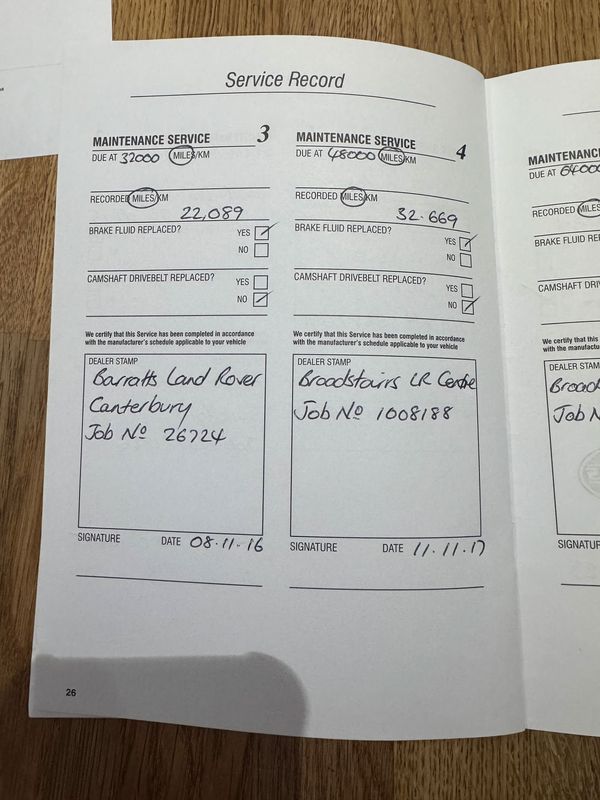 Service Record
MAINTENANCE SERVICE 3
DUE AT 32000 MILES/KM
RECORDED MILES/KM
22,089
BRAKE FLUID REPLACED? YES
NO
CAMSHAFT DRIVEBELT REPLACED? YES
NO
We certify that this Service has been completed in accordance
with the manufacturer's schedule applicable to your vehicle
DEALER STAMP
Barratts Land Rover
Canterbury
Job No 26724
SIGNATURE DATE 08.11.16
MAINTENANCE SERVICE 4
DUE AT 48000 MILES/KM
RECORDED MILES/KM
32.669
BRAKE FLUID REPLACED? YES
NO
CAMSHAFT DRIVEBELT REPLACED? YES
NO
We certify that this Service has been completed in accordance
with the manufacturer's schedule applicable to your vehicle
DEALER STAMP
Broadstairs LR Centre
Job No 1008188
SIGNATURE DATE 11.11.17
26
MAINTENANC
DUE AT 64000
RECORDED MILES
BRAKE FLUID RE
CAMSHAFT DRIV
We certify that this
with the manufactu
DEALER STAM
Broad
Job N
SIGNATUR